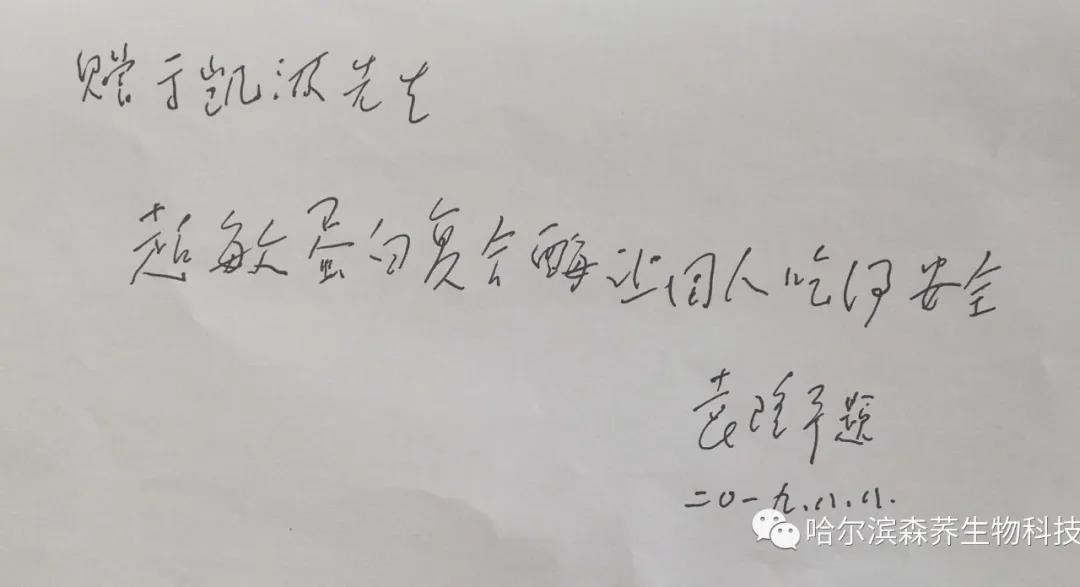 赠于凯波先生
超敏蛋白复合酶让国人吃得安全
袁隆平题
二0一九.八.八.
哈尔滨森荞生物科技